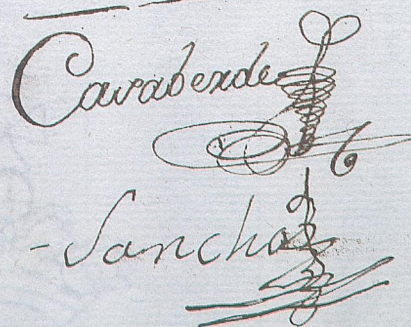 Caraberde
-Sancha